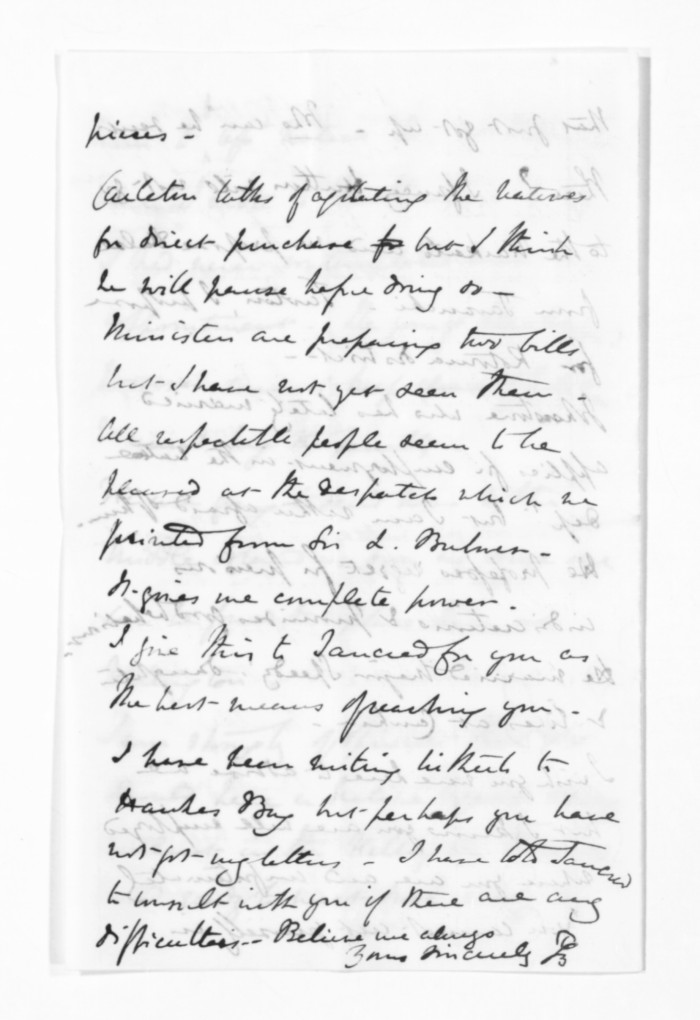 pieces -
Carleton talks of agitating the Natives
for direct purchase for but I think
he will pause before doing so -
Ministers are preparing two bills
but I have not yet seen them -
All respectable people seem to be
pleased at the despatch which we
printed from Sir L. Bulwer -
It gives me complete power.
I give this to Tancred for you as
the best means of reaching you -
I have been writing hitherto to
Hawkes Bay but perhaps you have
not got my letters - I have told Tancred
to consult with you if there are any
difficulties -- Believe me always
Yours sincerely